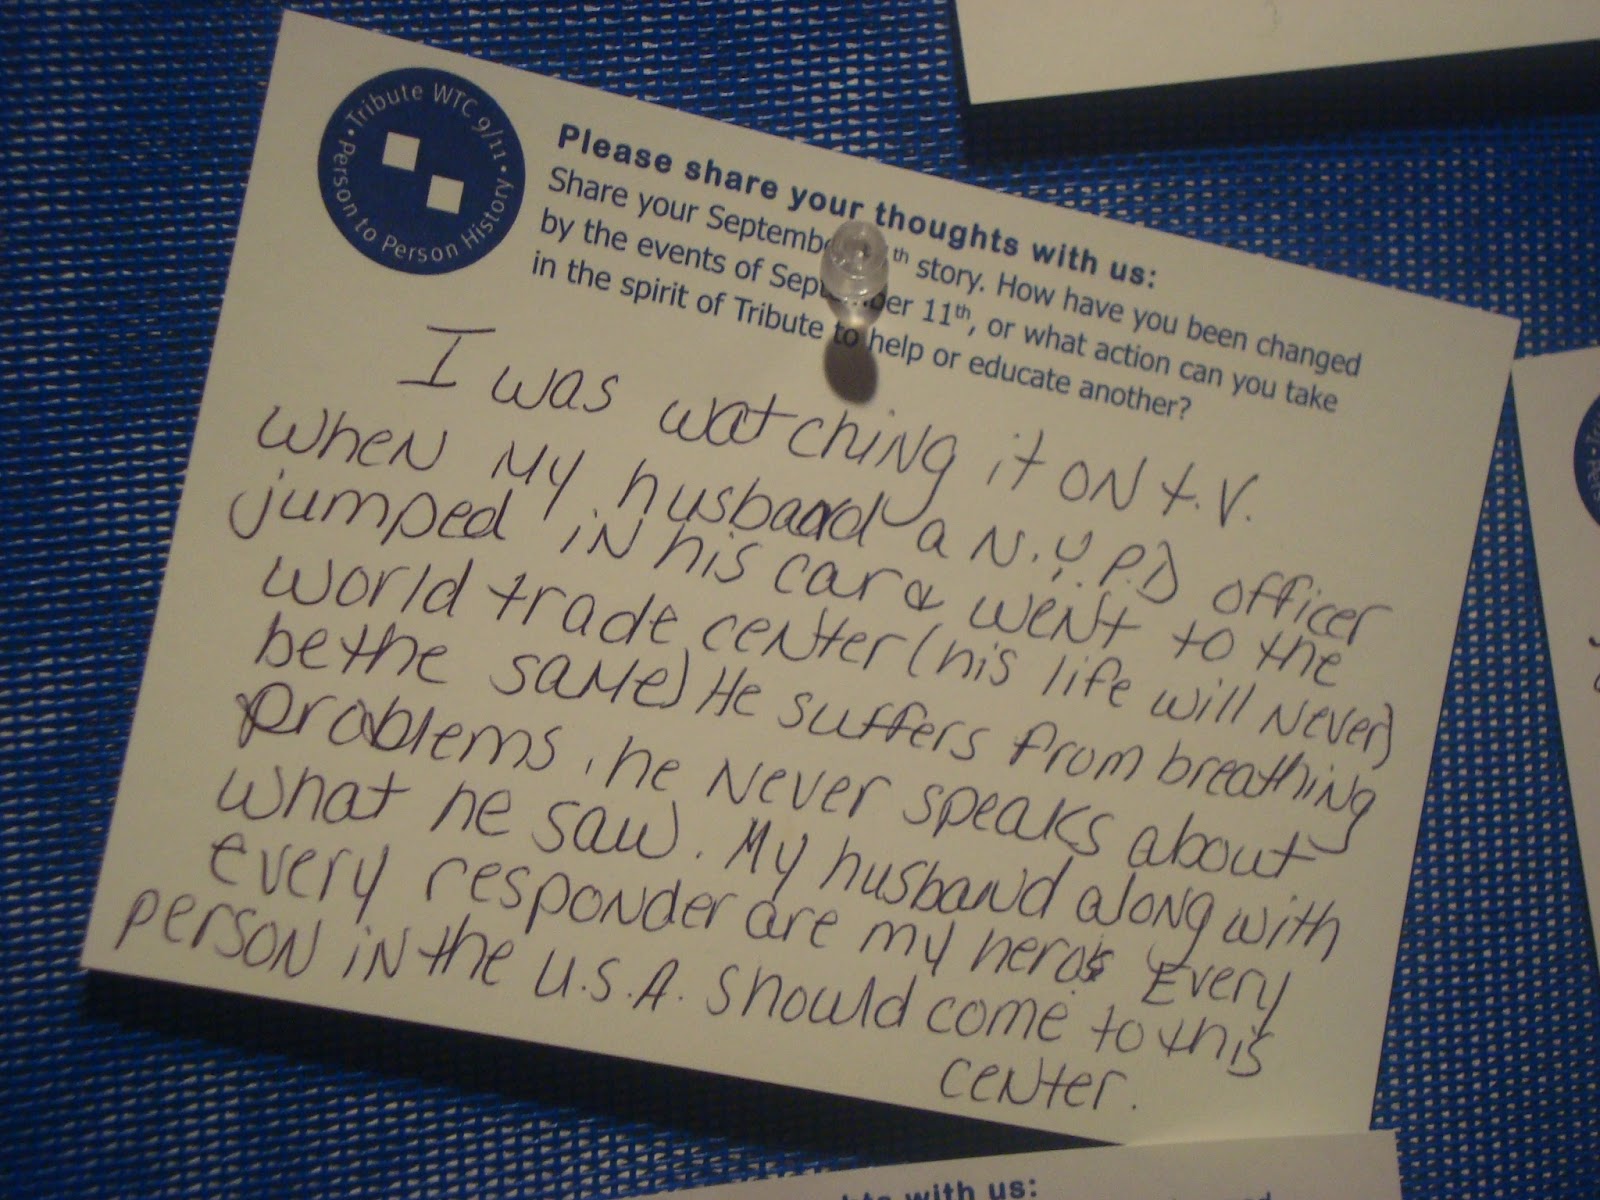 Tribute WTC 9/11 • Person to Person History •
Please share your thoughts with us:
Share your September 11th story. How have you been changed
by the events of September 11th, or what action can you take
in the spirit of Tribute to help or educate another?
I was watching it on t.v.
when my husband a N.Y.P.D officer
jumped in his car & went to the
world trade center (his life will never)
be the same) He suffers from breathing
problems, he never speaks about
what he saw. My husband along with
every responder are my hero's Every
person in the U.S.A. should come to this
center.
with us: